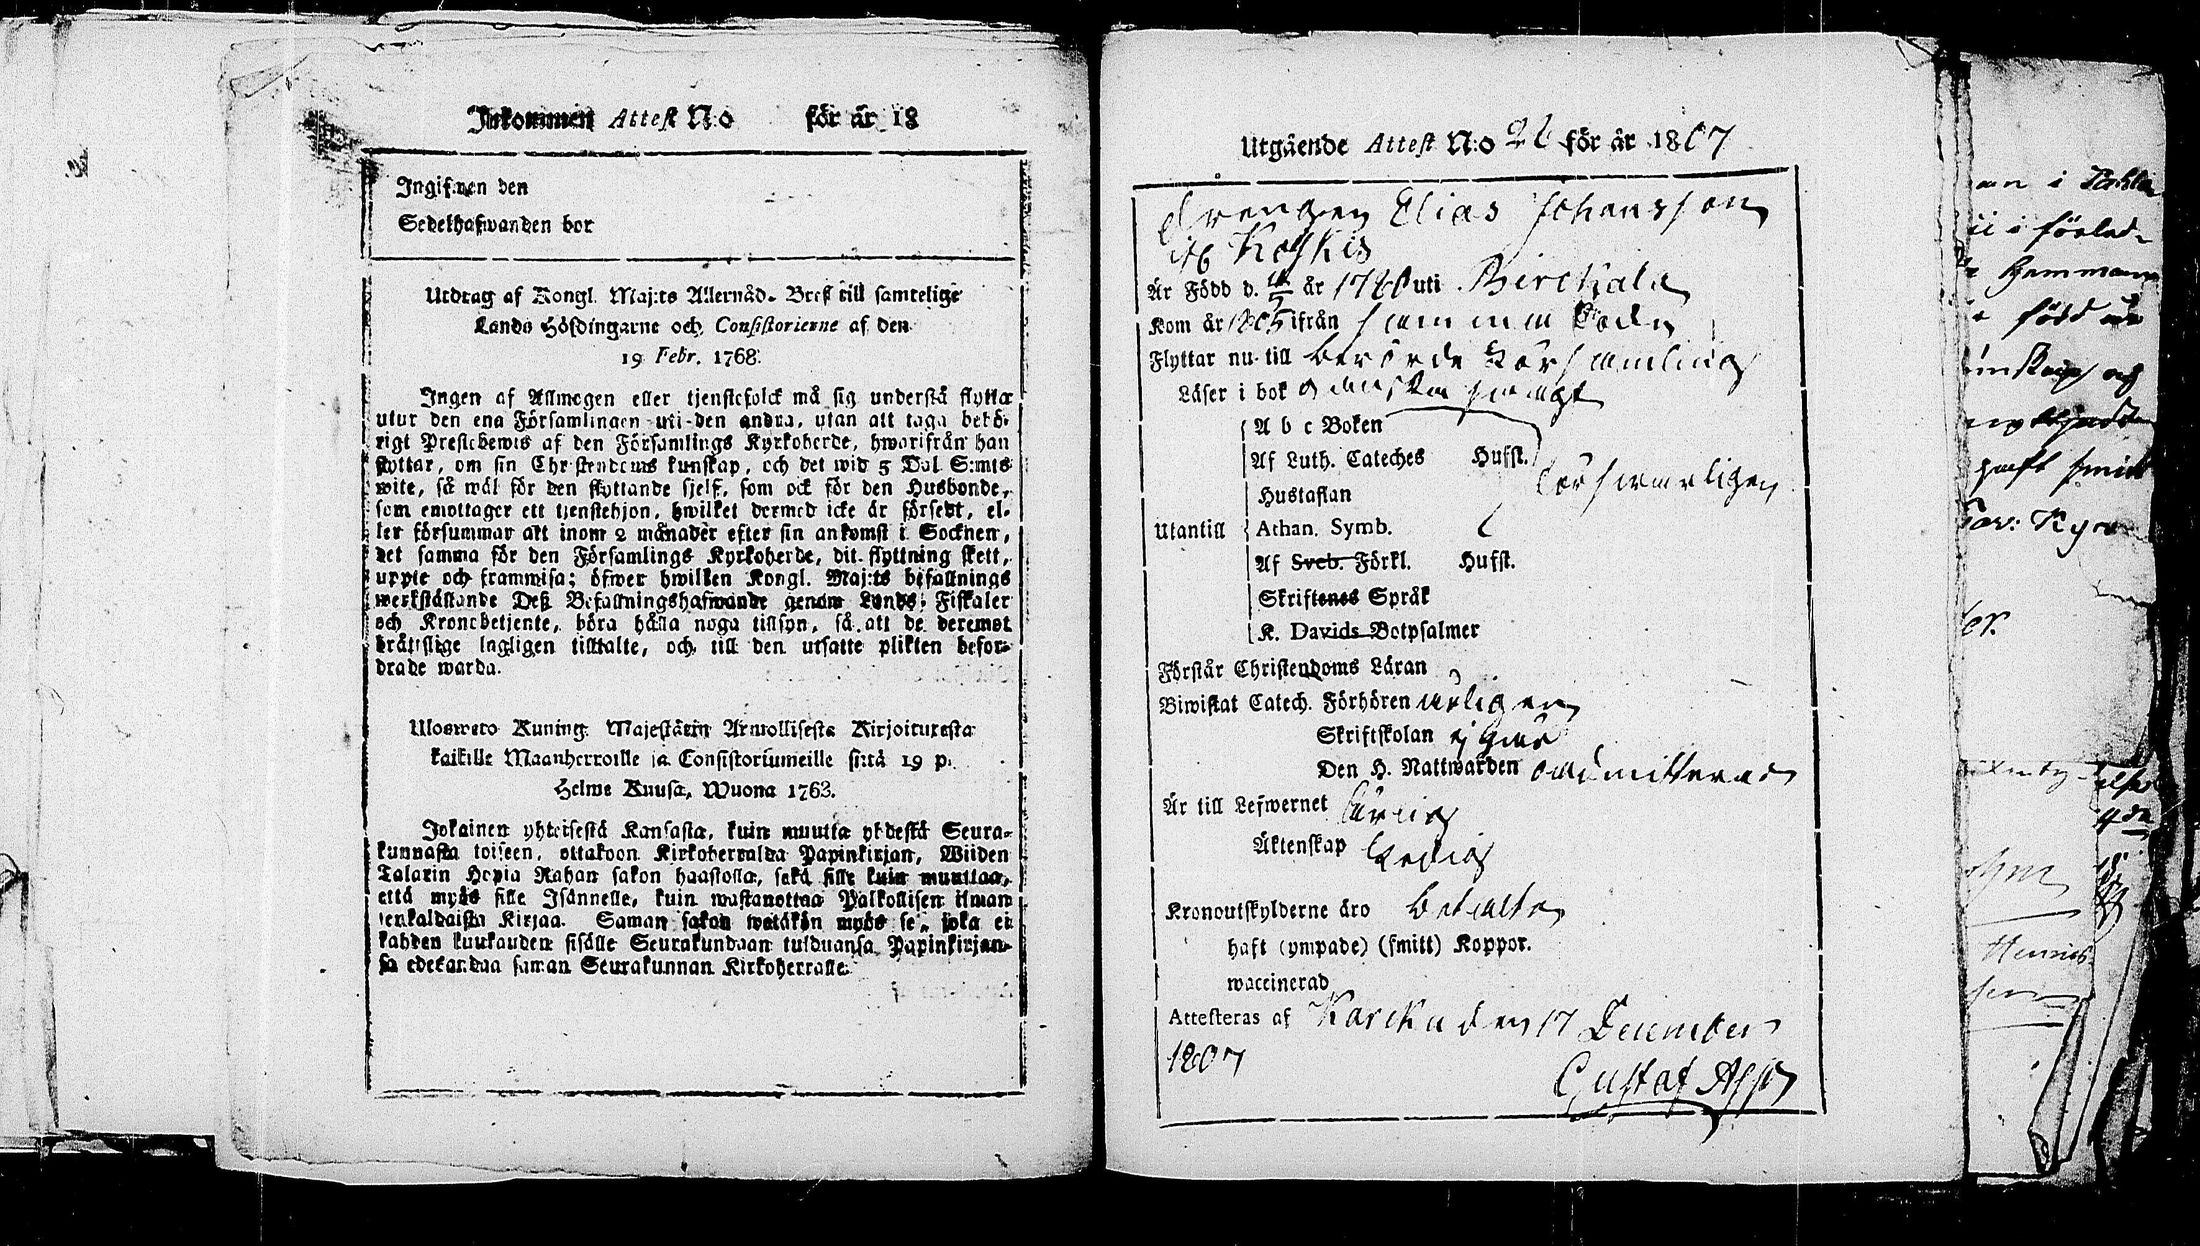 Inkommen Attest N:o för år 18
Ingifwen den
Sedelhafwanden bor
Utdrag af Kongl. Maj:ts Allernåd. Bref till samtelige
Lands Höfdingarne och Consistorierne af den
19 Febr. 1768.
Ingen af Allmogen eller tjenstefolck må sig understå flytta
utur den ena Församlingen uti den andra, utan att taga behö-
rigt Prestebewis af den Församlings Kyrkoherde, hwarifrån han
flyttar, om sin Christendoms kunskap, och det wid 5 Dal. S:mts
wite, så wäl för den flyttande sjelf, som ock för den Husbonde,
som emottager ett tjenstehjon, hwilket dermed icke är försedt, el-
ler försummar att inom 2 månader efter sin ankomst i Socknen,
det samma för den Församlings Kyrkoherde, dit flyttning skett,
uppte och frammisa; öfwer hwilken Kongl. Maj:ts befallnings
werkställande Deß Befallningshafwande genom Lands Fiskaler
och Kronobetjente, böra hålla noga tillsyn, så att de deremot
brättslige lagligen tilltalte, och till den utsatte plikten befor-
drade warda.
Uloswete Kuning. Majestätin Armollisesta Kirjoituxesta
kaikille Maanherroille ja Consistoriumeille siitä 19 p.
Helme Kuusa, Wuona 1763.
Jokainen yhteisestä Kansasta, kuin muutta yhdestä Seura-
kunnasta toiseen, ottakoon Kirkoherralda Papinkirjan, Wiiden
Talarin Hopia Rahan sakon haastolla, sekä sille kuin muuttaa,
että myös sille Isännelle, kuin wastanottaa Palkollisen ilman
senkaldaista Kirjaa. Saman sakon wetäkön myös se, joka ei
kahden kuukauden sisälle Seurakundaan tulduansa Papinkirjan-
sa edekandaa saman Seurakunnan Kirkoherralle.
Utgående Attest N:o 26 för år 1807
Drengen Elias Johansson
Koskis
Är Född d. år 1780 uti Birckala
Kom år 1805 ifrån samma Socken
Flyttar nu till berörde Församling
Läser i bok ganska swagt
A b c Boken
Af Luth. Cateches Hufst.
Hustaflan
Utantill Athan. Symb.
Af Sveb. Förkl. Hufst.
Skriftenes Språk
K. Davids Botpsalmer
förswarligen
Förstår Christendoms Läran
Biwistat Catech. Förhören årligen
Skriftskolan ej
Den H. Nattwarden admitterad
Är till Lefwernet ärlig
Äktenskap ledig
Kronoutskylderne äro betalte
haft (ympade) (smitt) Koppor.
waccinerad
Attesteras af Karcku den 17 December
1807
Gustaf